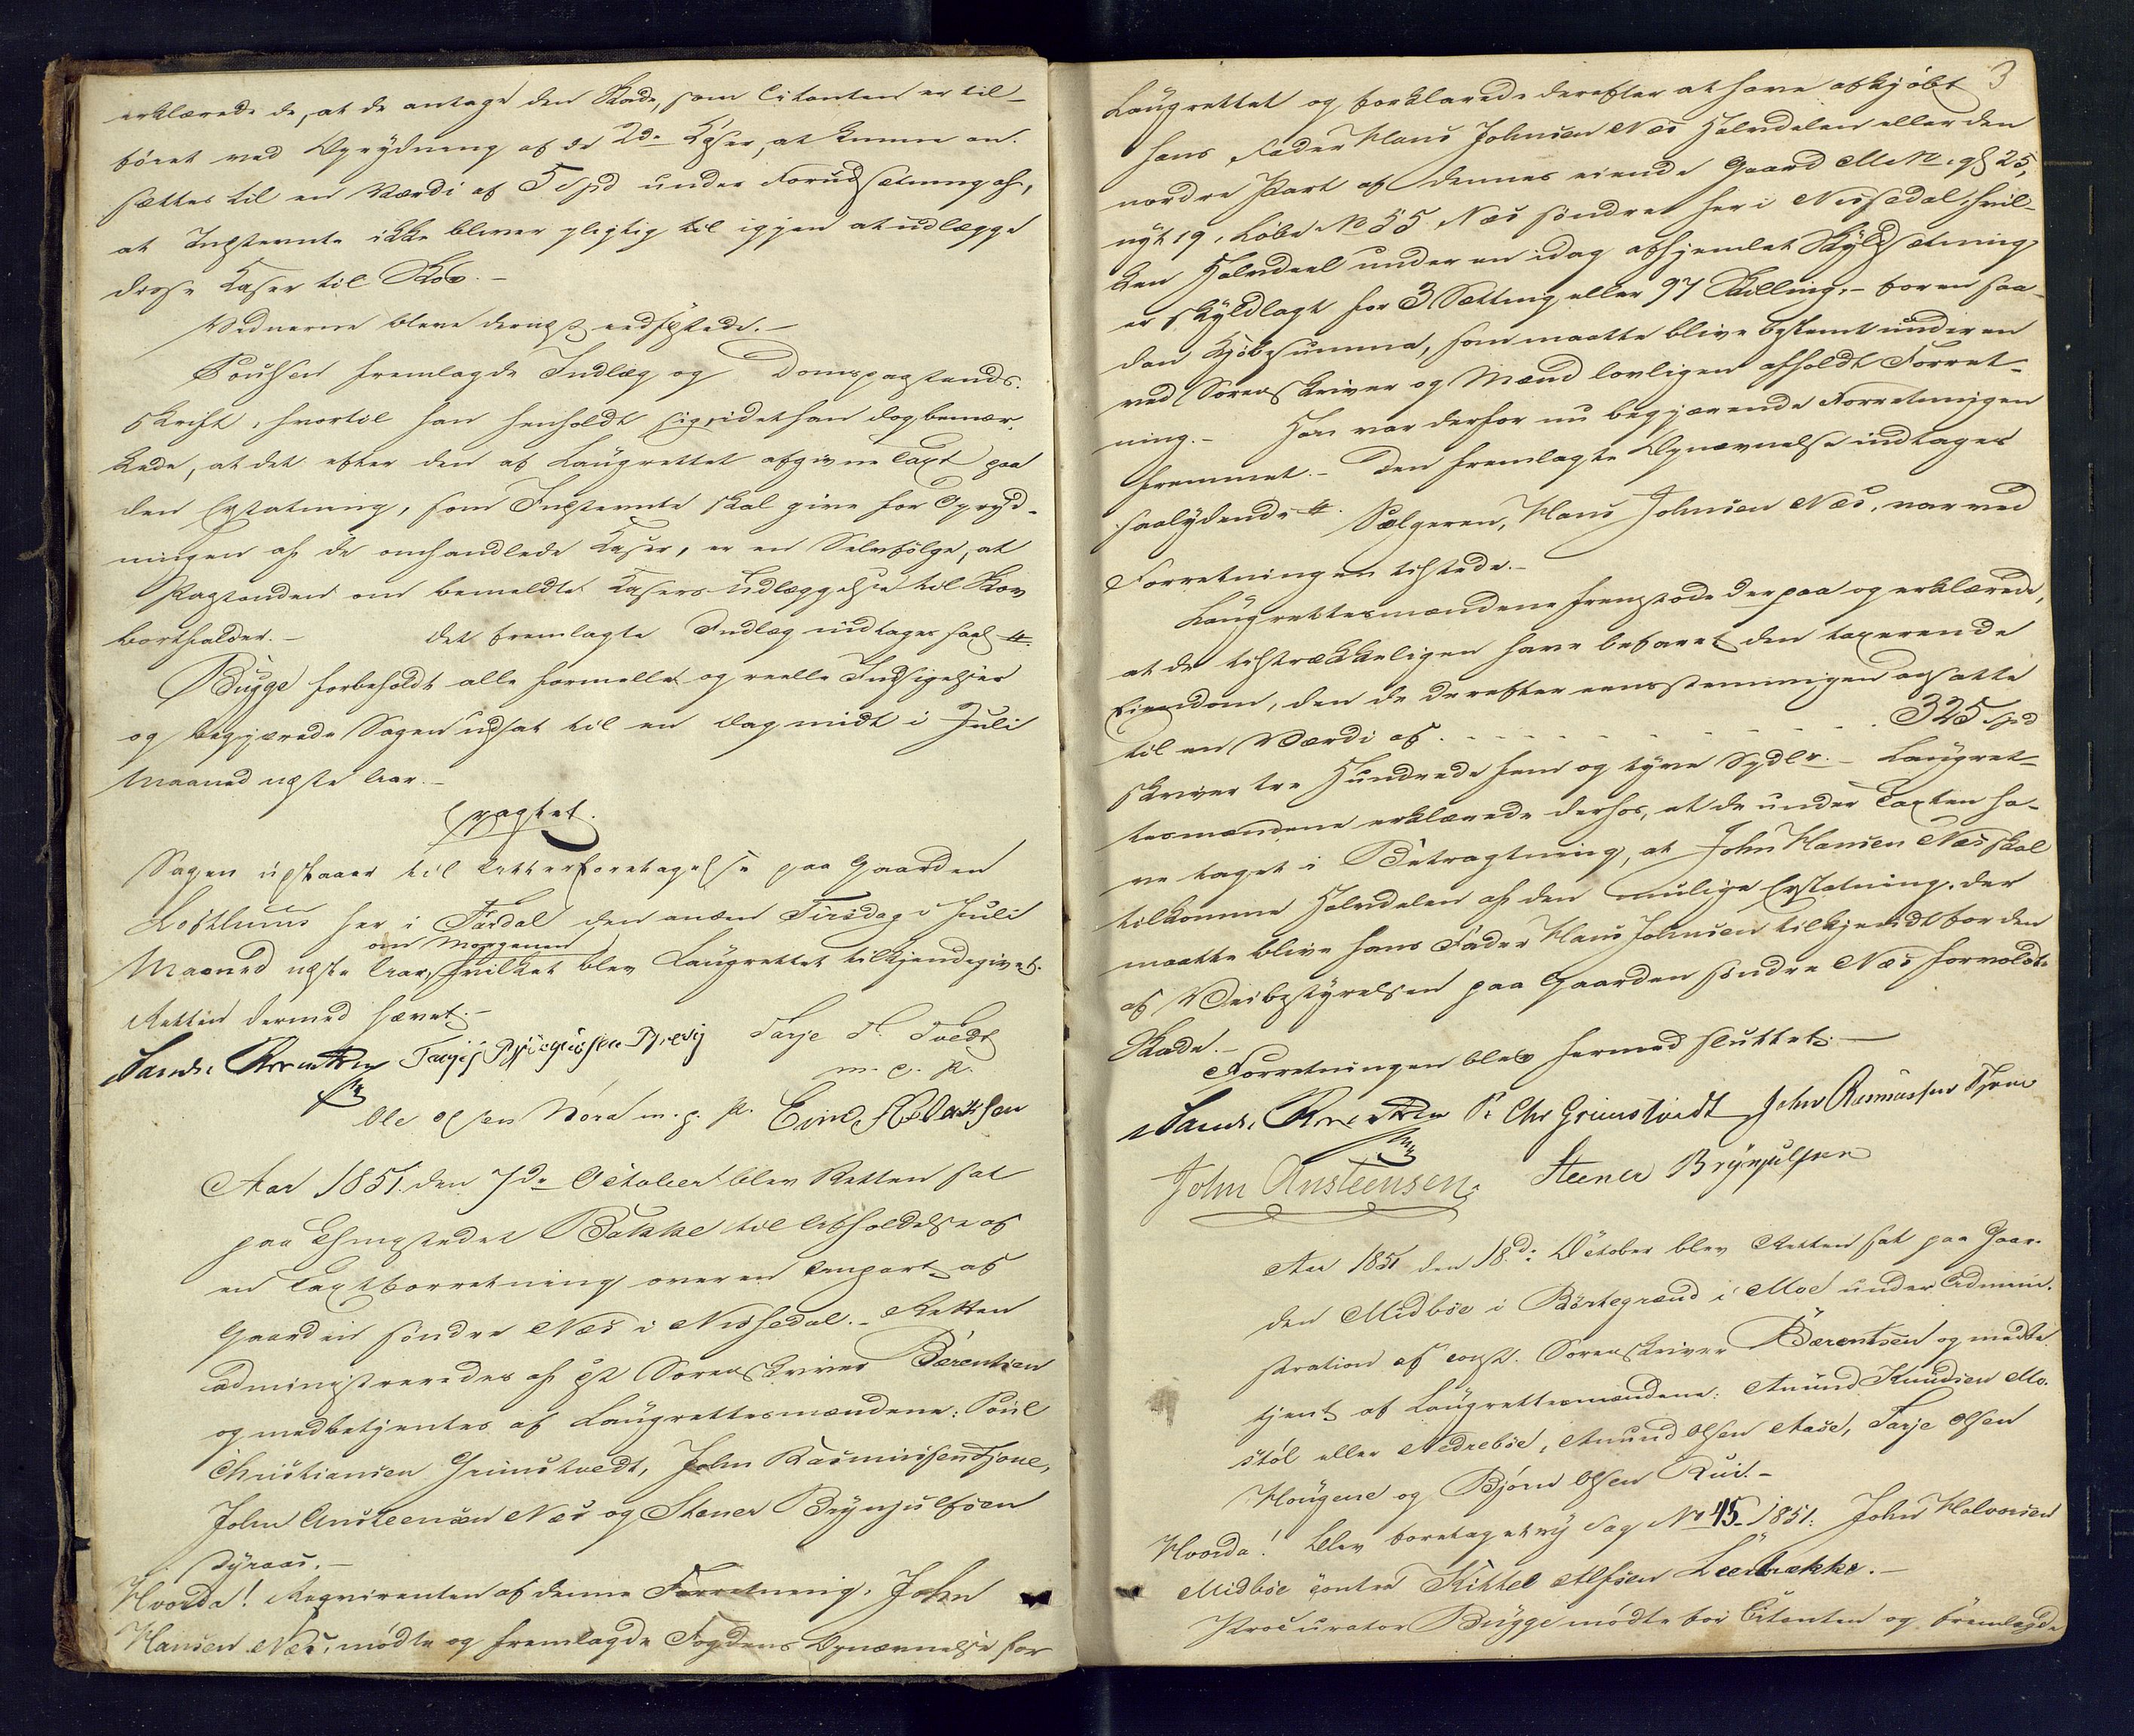 erklærede de, at de antage den Skade, som Citanten er til-
föiet ved Oprydning af de 2de Kaser, at kunne an-
sættes til en Værdi af 5 Spd under Forudsætning af,
at Indstevnte ikke bliver pligtig til igjen at udlægge
disse Kaser til Skov.-
Vidnerne bleve dernæst eedfæstede.-
Poulsen fremlagde Indlæg og Domspaastands-
skrift, hvortil han henholdt sig, idet han dog bemær-
kede, at det efter den af Laugrettet afgivne Taxt paa
den Erstatning, som Indstevnte skal give for Opryd-
ningen af de omhandlede Kaser, er en Selvfölge, at
Paastanden om bemeldte Kasers Udlæggelse til Skov
bortfalder.- Det fremlagte Indlæg indtages saal.
Bugge forbeholdt alle formelle og reelle Indsigelser
og begjærede Sagen udsat til en Dag midt i Juli
Maaned næste Aar.-
Eragtet.
Sagen udstaaer til Atterforetagelse paa Gaarden
Lofthuus her i Fårdal den anden Tirsdag i Juli
om Morgenen
Maaned næste Aar, hvilket blev Laugrettet tilkjendegivet.
Retten dermed hævet.-
Barentsen Tarje T. Tvedt
m. p. P.
Ole Olsen Nora m. p. P.
Aar 1851 den 7de October blev Retten sat
paa Thingstedet Bakke til Afholdelse af
en Taxtforretning over en Anpart af
Gaarden söndre Næs i Nissedal.- Retten
administreredes af cst Sorenskriver Barentsen
og medbetjentes af Laugrettesmændene: Poul
Christiansen Grimstvedt, John Rasmussen Tjone,
John Austeensen Næs og Stener Brynjulfsen
Dyraas.-
Hvorda! Reqvirenten af denne Forretning, John
Hansen Næs, mödte og fremlagde Fogdens Opnævnelse for
3
Laugrettet og forklarede derefter at have afkjöbt
hans Fader Hans Johnsen Næs Halvdelen eller den
nordre Part af dennes eiende Gaard M. No. gl 25,
nyt 19, Löbe No 55 Næs söndre her i Nissedal, hvil-
ken Halvdeel under en idag afhjemlet Skyldsætning
er skyldlagt for 3 Sætting eller 97 Skilling, - for en saa-
dan Kjöbesumma, som maatte blive bestemt under en
ved Sorenskriver og Mænd lovligen afholdt Forret-
ning.- Han var derfor nu begjærende Forretningen
fremmet.- Den fremlagte Opnævnelse indtages
saalydende. Sælgeren, Hans Johnsen Næs, var ved
Forretningen tilstede.-
Laugrettesmændene fremstode derpaa og erklærede,
at de tilstrækkeligen have befaret den taxerende
Eiendom, den de derefter eensstemmigen ansatte
til en Værdi af . . . . . . . . . . 325 Spd
skriver tre Hundrede fem og tyve Spdlr.- Laugret-
tesmændene erklærede derhos, at de under Taxten ha-
ve taget i Betragtning, at John Hansen Næs skal
tilkomme Halvdelen af den mulige Erstatning, der
maatte blive hans Fader Hans Johnsen tilkjendt for den
af Veibestyrelsen paa Gaarden söndre Næs forvoldte
Skade.-
Forretningen blev hermed sluttet.-
Barentsen P. Chr Grimstvedt John Rasmussen Tjone
John Austeensen Steener Brynjulfsen
Aar 1851 den 18de October blev Retten sat paa Gaar-
den Midböe i Börtegrænd i Moe under Admini-
stration af const. Sorenskriver Barentsen og medbe-
tjent af Laugrettesmændene: Aanund Knudsen Mo-
stöl eller Nedreböe, Aanund Olsen Aase, Tarje Olsen
Hougene og Björn Olsen Rui.-
Hvorda! Blev foretaget ny Sag No 45 1851: John Halvorsen
Midböe contra Kittel Alfsen Leebrække.-
Procurator Bugge mödte for Citanten og fremlagde